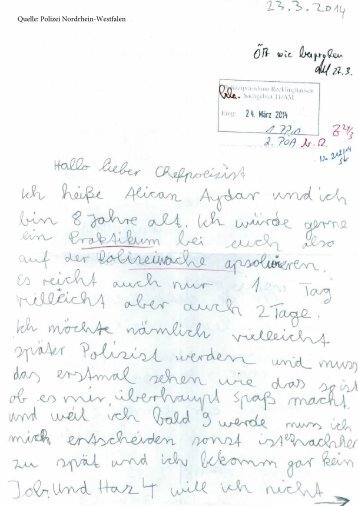 23.3.2014
Quelle: Polizei Nordrhein-Westfalen
ÖA wie besprochen
27.3.
Polizeipräsidium Recklinghausen
Eing: 24. März 2014
Hallo lieber Chefpoizist
Ich heiße Alican Aydar und ich
bin 8 Jahre alt. Ich würde gerne
ein Praktikum bei euch also
auf der Polizeiwache apsolvieren.
Es reicht auch nur 1 Tag
vielleicht aber auch 2 Tage.
Ich möchte nämlich vielleicht
später Polizist werden und muss
das erstmal sehen wie das so ist
ob es mir überhaupt Spaß macht.
und weil ich bald 9 werde muss ich
mich entscheiden sonst ist es nachher
zu spät und ich bekomm gar kein
Job. Und Harz 4 will ich nicht →